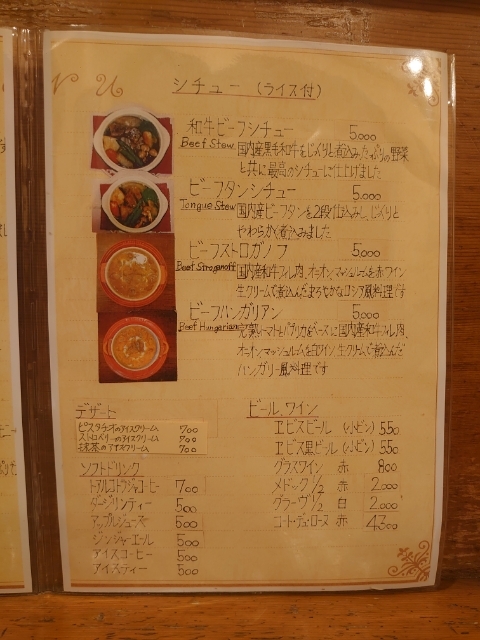 シチュー (ライス付)
和牛ビーフシチュー 5,000
Beef Stew
国内産黒毛和牛をじっくりと煮込みたっぷりの野菜
と共に最高のシチューに仕上げました
ビーフタンシチュー 5,000
Tongue Stew
国内産ビーフタンを2段仕込みし、じっくりと
やわらかく煮込みました
ビーフストロガノフ 5,000
Beef Stroganoff
国内産和牛フィレ肉、オニオン、マッシュルームを赤ワイン
生クリームで煮込んだまろやかなロシア風料理です
ビーフハンガリアン 5,000
Beef Hungarian
完熟トマトとパプリカをベースに国内産和牛フィレ肉、
オニオン、マッシュルームを白ワイン生クリームで煮込んだ
ハンガリー風料理です
デザート
ピスタチオのアイスクリーム 700
ストロベリーのアイスクリーム 700
抹茶のアイスクリーム 700
ソフトドリンク
トアルコトラジャコーヒー 700
ダージリンティー 500
アップルジュース 600
ジンジャーエール 500
アイスコーヒー 500
アイスティー 500
ビール、ワイン
ヱビスビール (小ビン) 550
ヱビス黒ビール (小ビン) 550
グラスワイン 赤 800
メドック1/2 赤 2,000
グラーヴ1/2 白 2,000
コート・デュ・ローヌ 赤 4,300